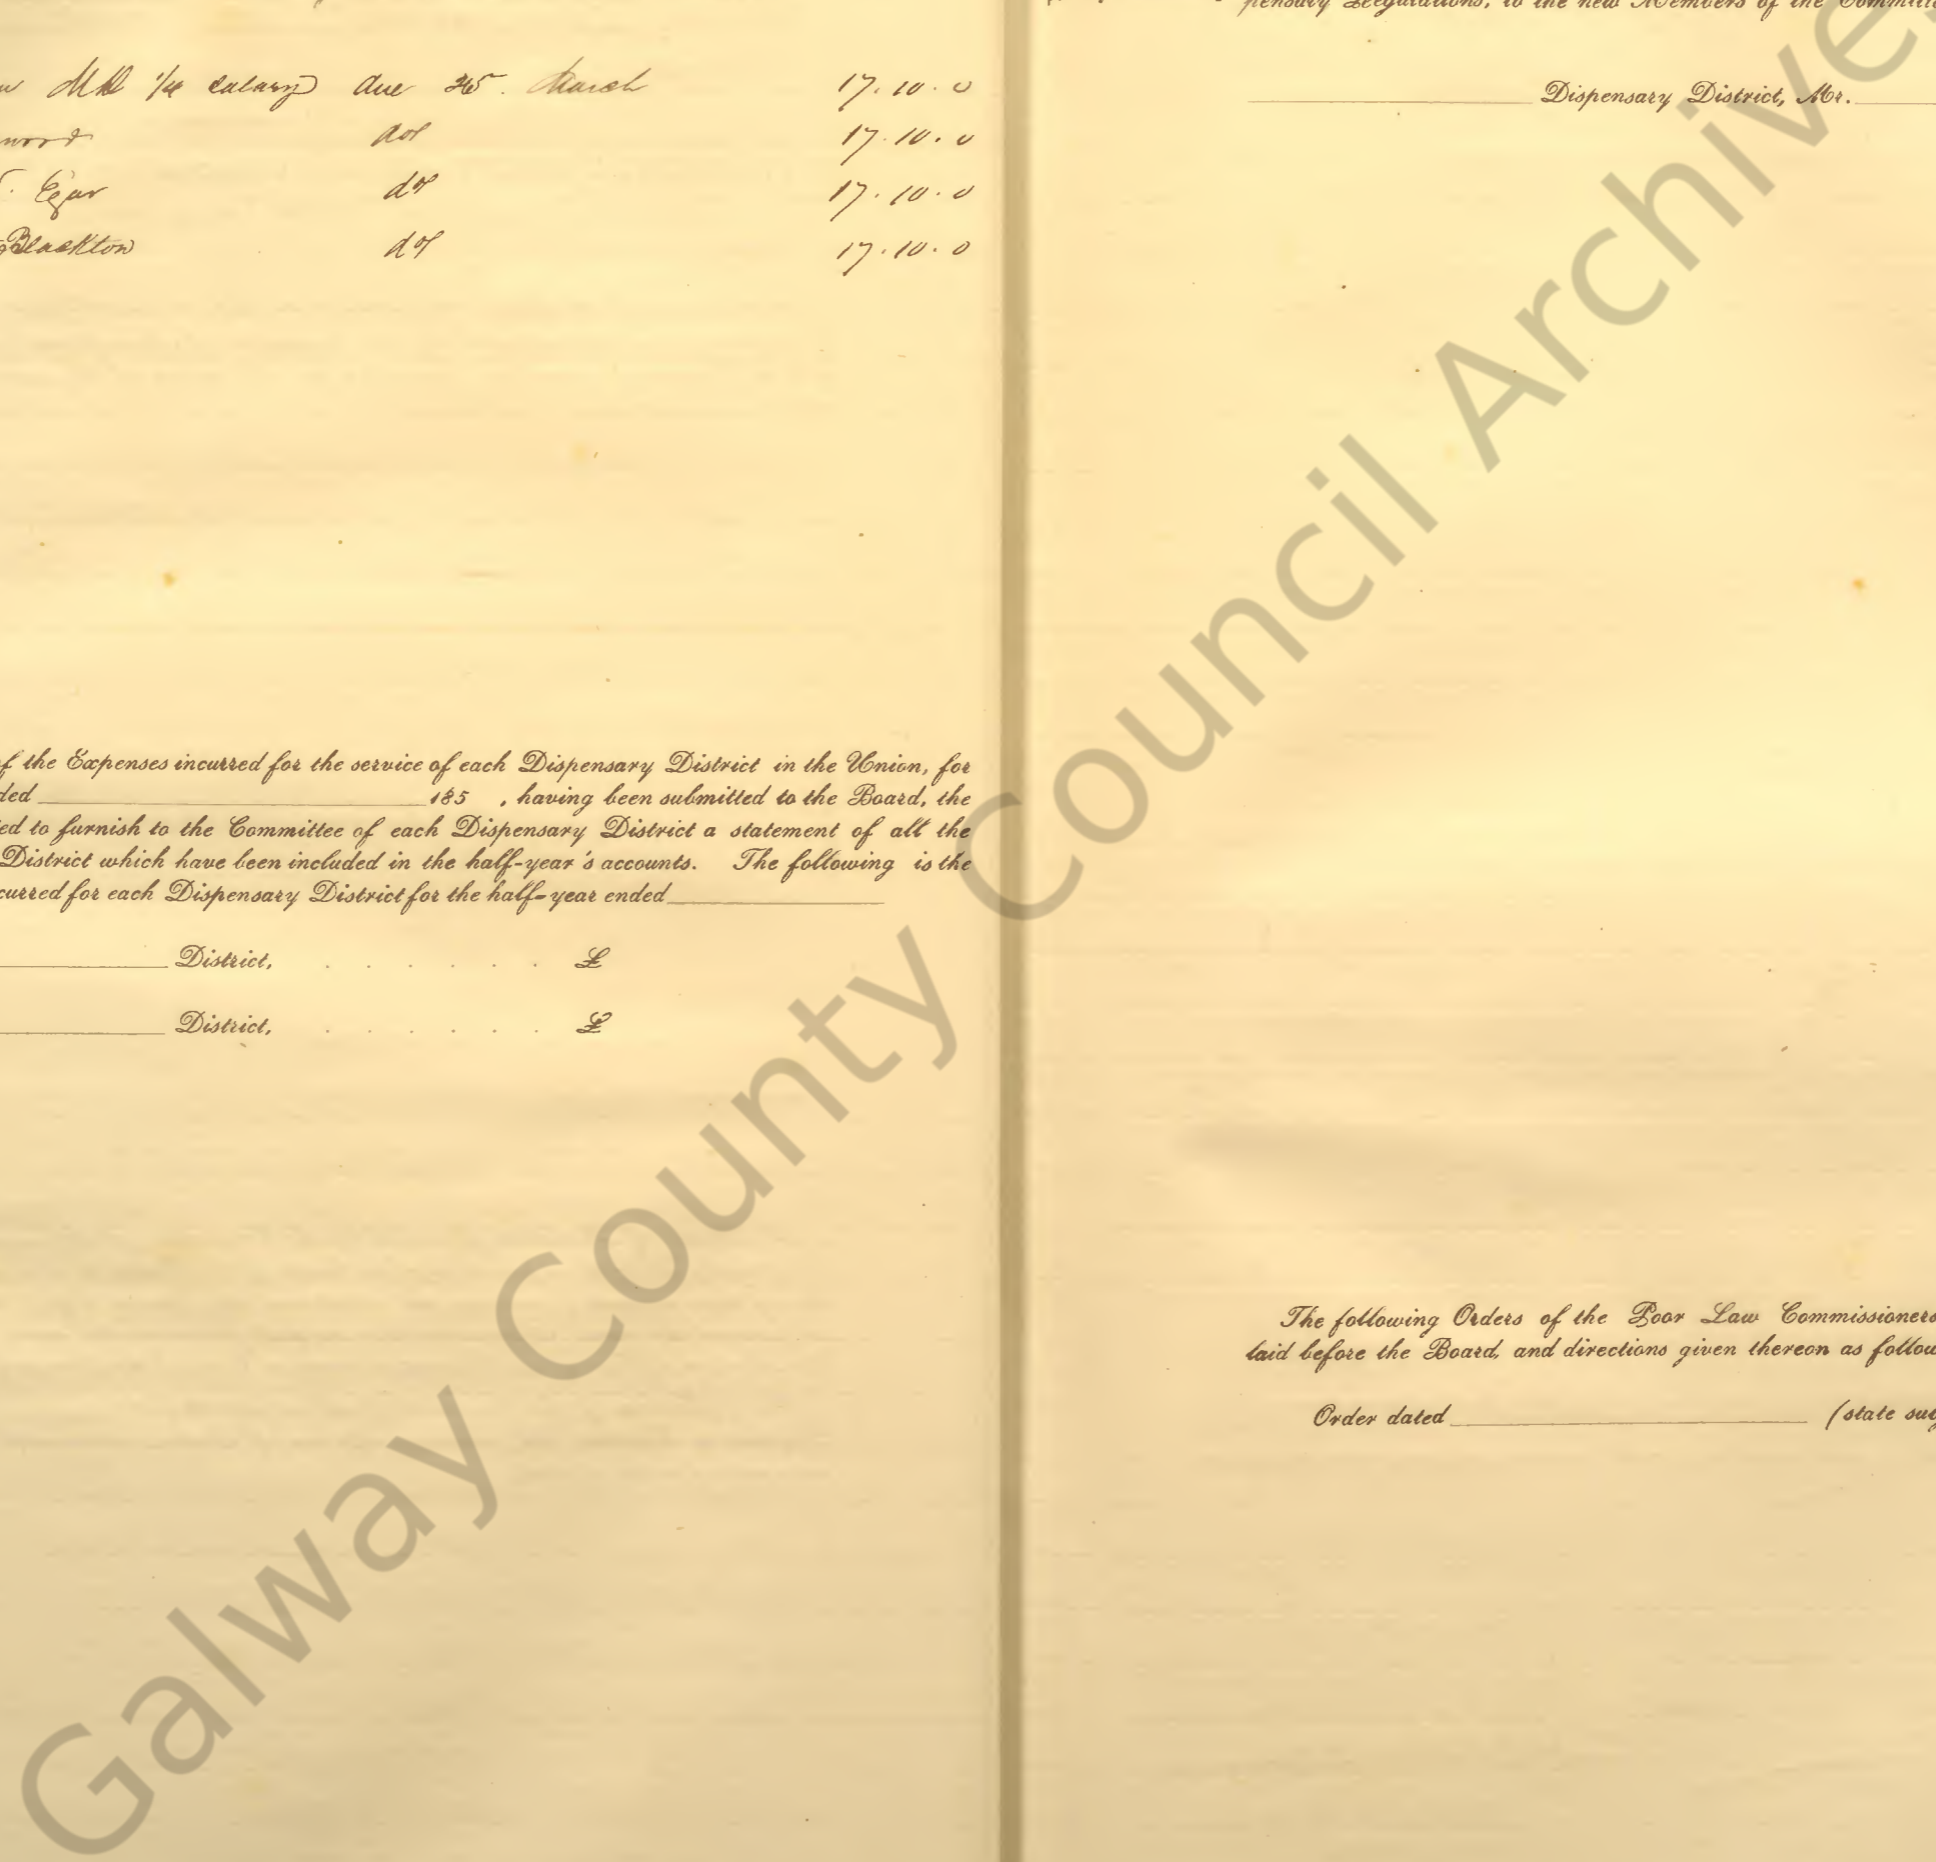 MD 1/4 salary due 25. March 17.10.0
do 17.10.0
Egar do 17.10.0
Blackton do 17.10.0
f the Expenses incurred for the service of each Dispensary District in the Union, for
ded 185 , having been submitted to the Board, the
ed to furnish to the Committee of each Dispensary District a statement of all the
District which have been included in the half-year's accounts. The following is the
curred for each Dispensary District for the half-year ended
District, . . . . . . £
District, . . . . . . £
pensary Regulations, to the new Members of the Committe
Dispensary District, Mr.
The following Orders of the Poor Law Commissioners
laid before the Board, and directions given thereon as follow
Order dated (state su
Galway County Council Archive